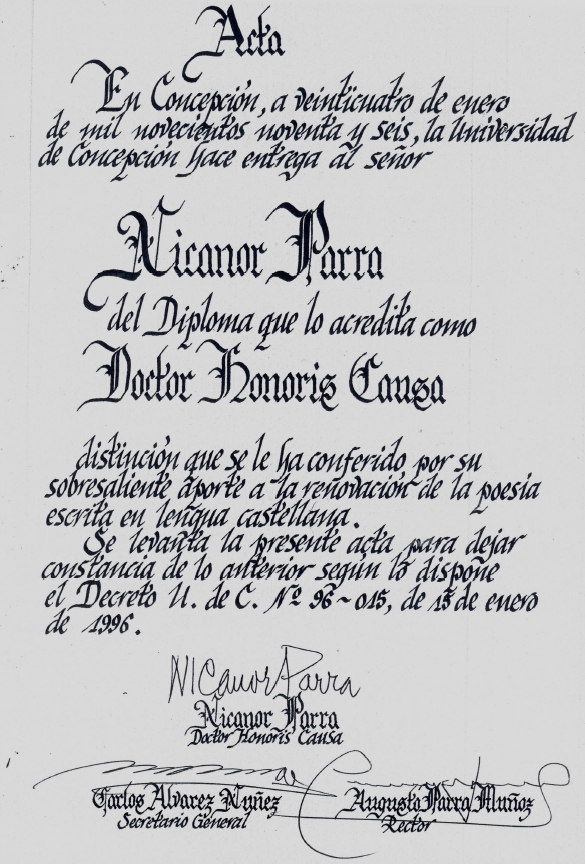 Acta
En Concepción, a veinticuatro de enero
de mil novecientos noventa y seis, la Universidad
de Concepción hace entrega al señor
Nicanor Parra
del Diploma que lo acredita como
Doctor Honoris Causa
distinción que se le ha conferido por su
sobresaliente aporte a la renovación de la poesía
escrita en lengua castellana.
Se levanta la presente acta para dejar
constancia de lo anterior según lo dispone
el Decreto U. de C. Nº 96-015, de 15 de enero
de 1996.
Nicanor Parra
Nicanor Parra
Doctor Honoris Causa
Carlos Alvarez Nuñez Augusto Parra Muñoz
Secretario General Rector